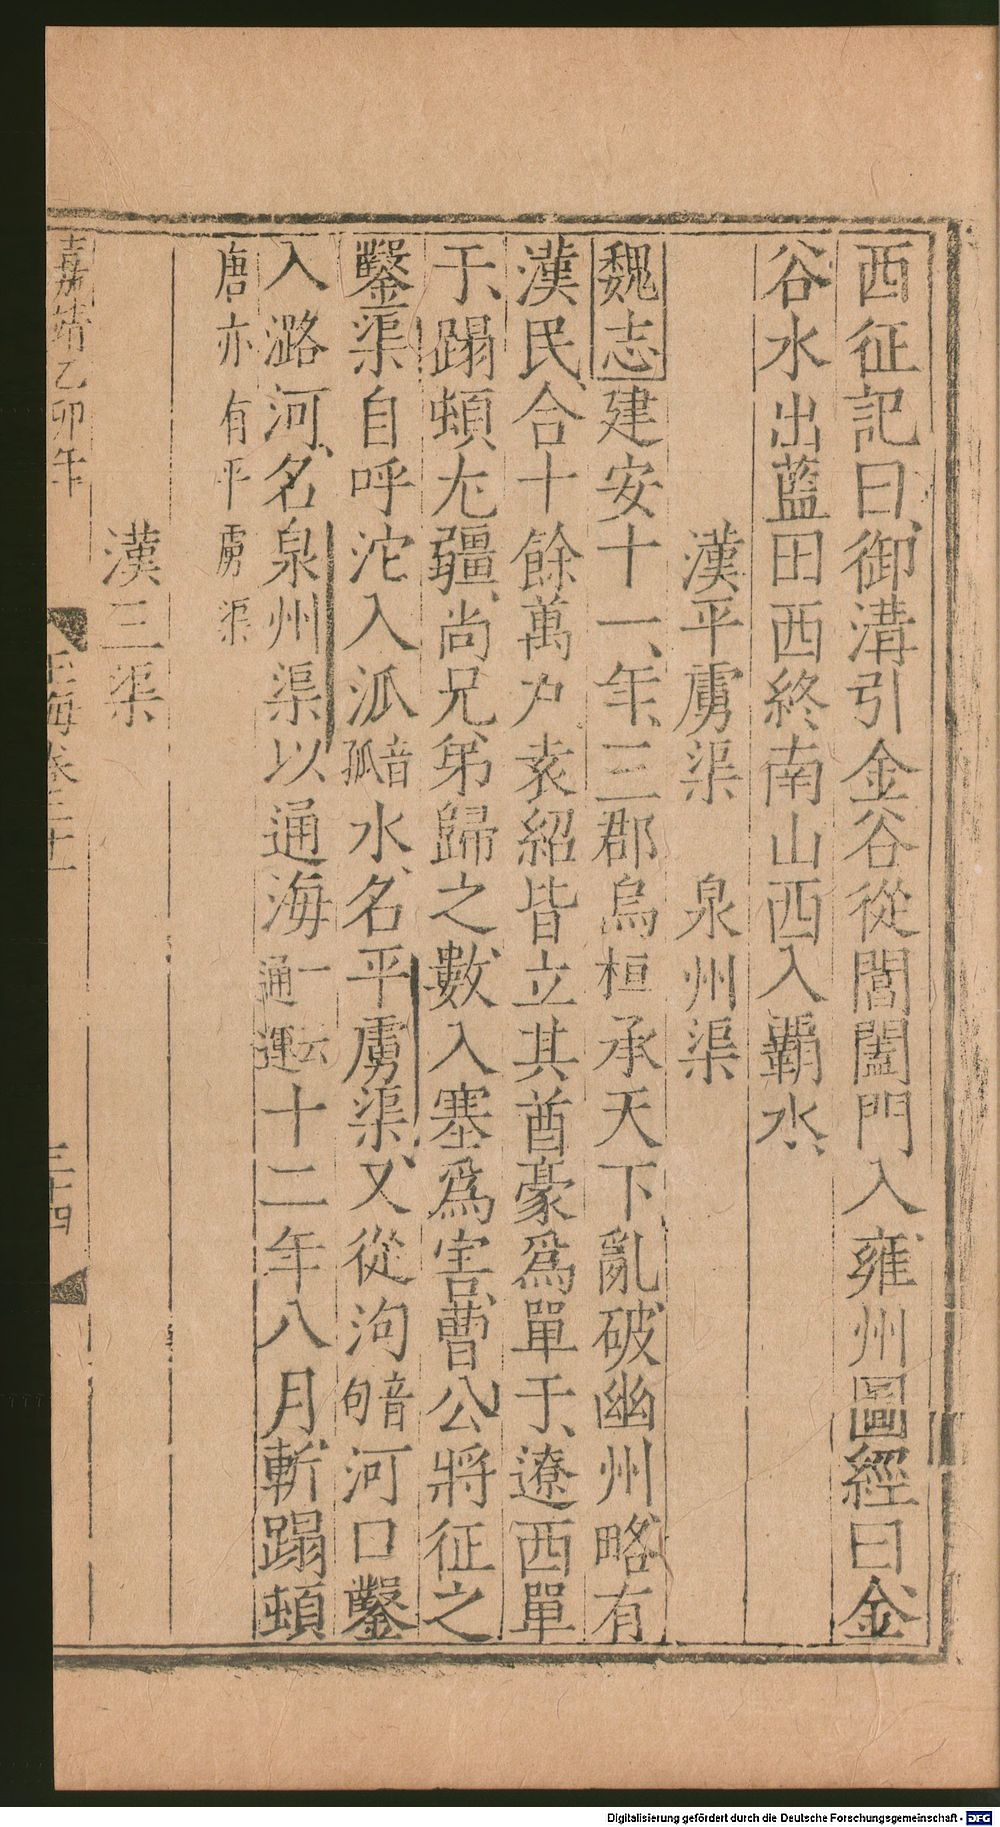 西征記曰御溝引金谷從閶闔門入雍州圖經曰金
谷水出藍田西終南山西入覇水
漢平虜渠　泉州渠
魏志建安十一年三郡烏桓承天下亂破幽州略有
漢民合十餘萬户袁紹皆立其酋豪爲單于遼西單
于蹋頓尢彊尚兄弟歸之數入塞爲害曹公將征之
鑿渠自呼沱入泒音孤水名平虜渠又從泃音句河口鑿
入潞河名泉州渠以通海一云通運十二年八月斬蹋頓
唐亦有平虜渠
漢三渠
嘉靖乙卯年　玉海卷二十一　三十四
Digitalisierung gefördert durch die Deutsche Forschungsgemeinschaft - DFG